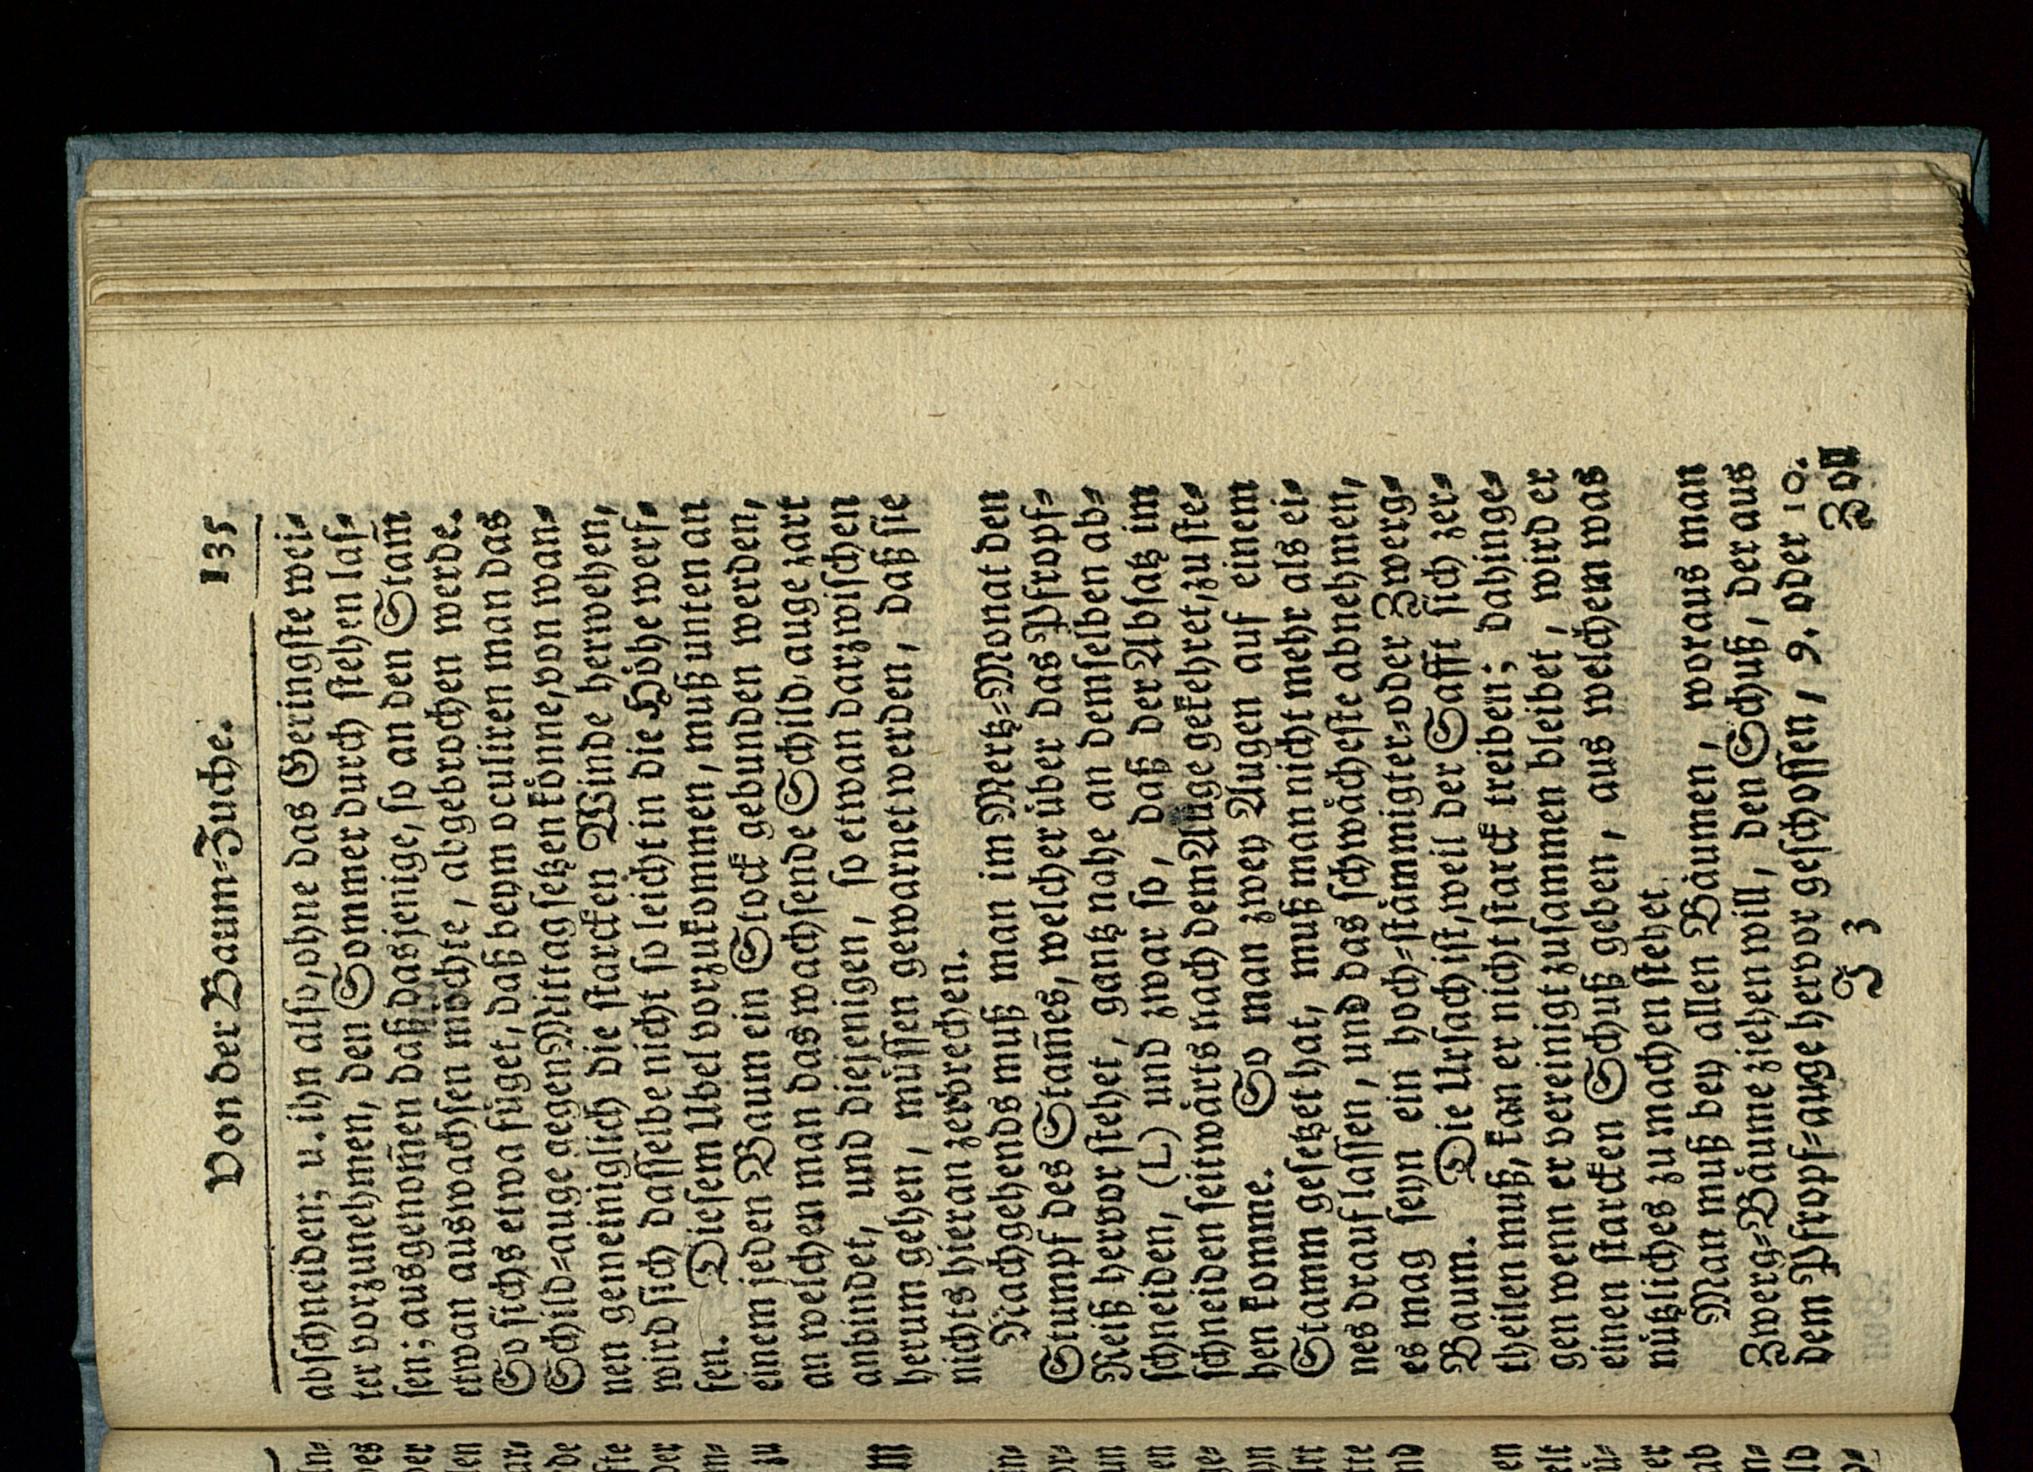 Von der Baum-Zuche. 135
abschneiden; u. ihn also, ohne das Geringste wei-
ter vorzunehmen, den Sommer durch stehen las-
sen; ausgenom̃en daß dasjenige, so an den Stam̃
etwan auswachsen möchte, abgebrochen werde.
So sichs etwa füget, daß beym oculiren man das
Schild-auge gegen Mittag setzen könne, von wan-
nen gemeiniglich die starcken Winde herwehen,
wird sich dasselbe nicht so leicht in die Höhe werf-
fen. Diesem Ubel vorzukommen, muß unten an
einem jeden Baum ein Stock gebunden werden,
an welchen man das wachsende Schild-auge zart
anbindet, und diejenigen, so etwan darzwischen
herum gehen, müssen gewarnet werden, daß sie
nichts hieran zerbrechen.
Nachgehends muß man im Mertz-Monat den
Stumpf des Stam̃es, welcher über das Pfropf-
Reiß hervor stehet, gantz nahe an demselben ab-
schneiden, (L) und zwar so, daß der Absatz im
schneiden seitwärts nach dem Auge gekehret, zu ste-
hen komme. So man zwey Augen auf einem
Stamm gesetzet hat, muß man nicht mehr als ei-
nes drauf lassen, und das schwächeste abnehmen,
es mag seyn ein hoch-stämmigter-oder Zwerg-
Baum. Die Ursach ist, weil der Safft sich zer-
theilen muß, kan er nicht starck treiben; dahinge-
gen wenn er vereinigt zusammen bleibet, wird er
einen starcken Schuß geben, aus welchem was
nützliches zu machen stehet.
Man muß bey allen Bäumen, woraus man
Zwerg-Bäume ziehen will, den Schuß, der aus
dem Pfropf-auge hervor geschossen, 9. oder 10.
J 3 Zoll